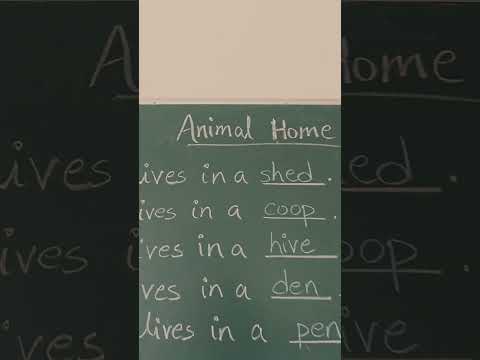 Animal Home
ives in a shed.
ives in a coop.
ives in a hive
ves in a den
lives in a pen